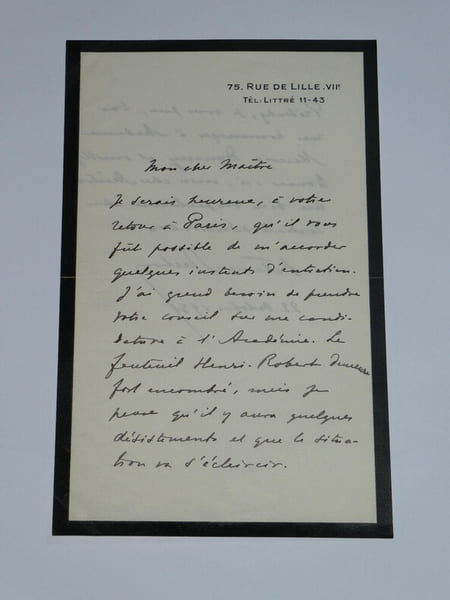 75, RUE DE LILLE .VIIᵉ
TÉL: LITTRÉ 11-43
Mon cher Maître
Je serais heureux, à votre
retour à Paris, qu'il vous
fût possible de m'accorder
quelques instants d'entretien.
J'ai grand besoin de prendre
votre conseil sur une candi-
dature à l'Académie. Le
fauteuil Henri-Robert demeure
fort encombré, mais je
pense qu'il y aura quelques
désistements et que la situa-
tion va s'éclaircir.